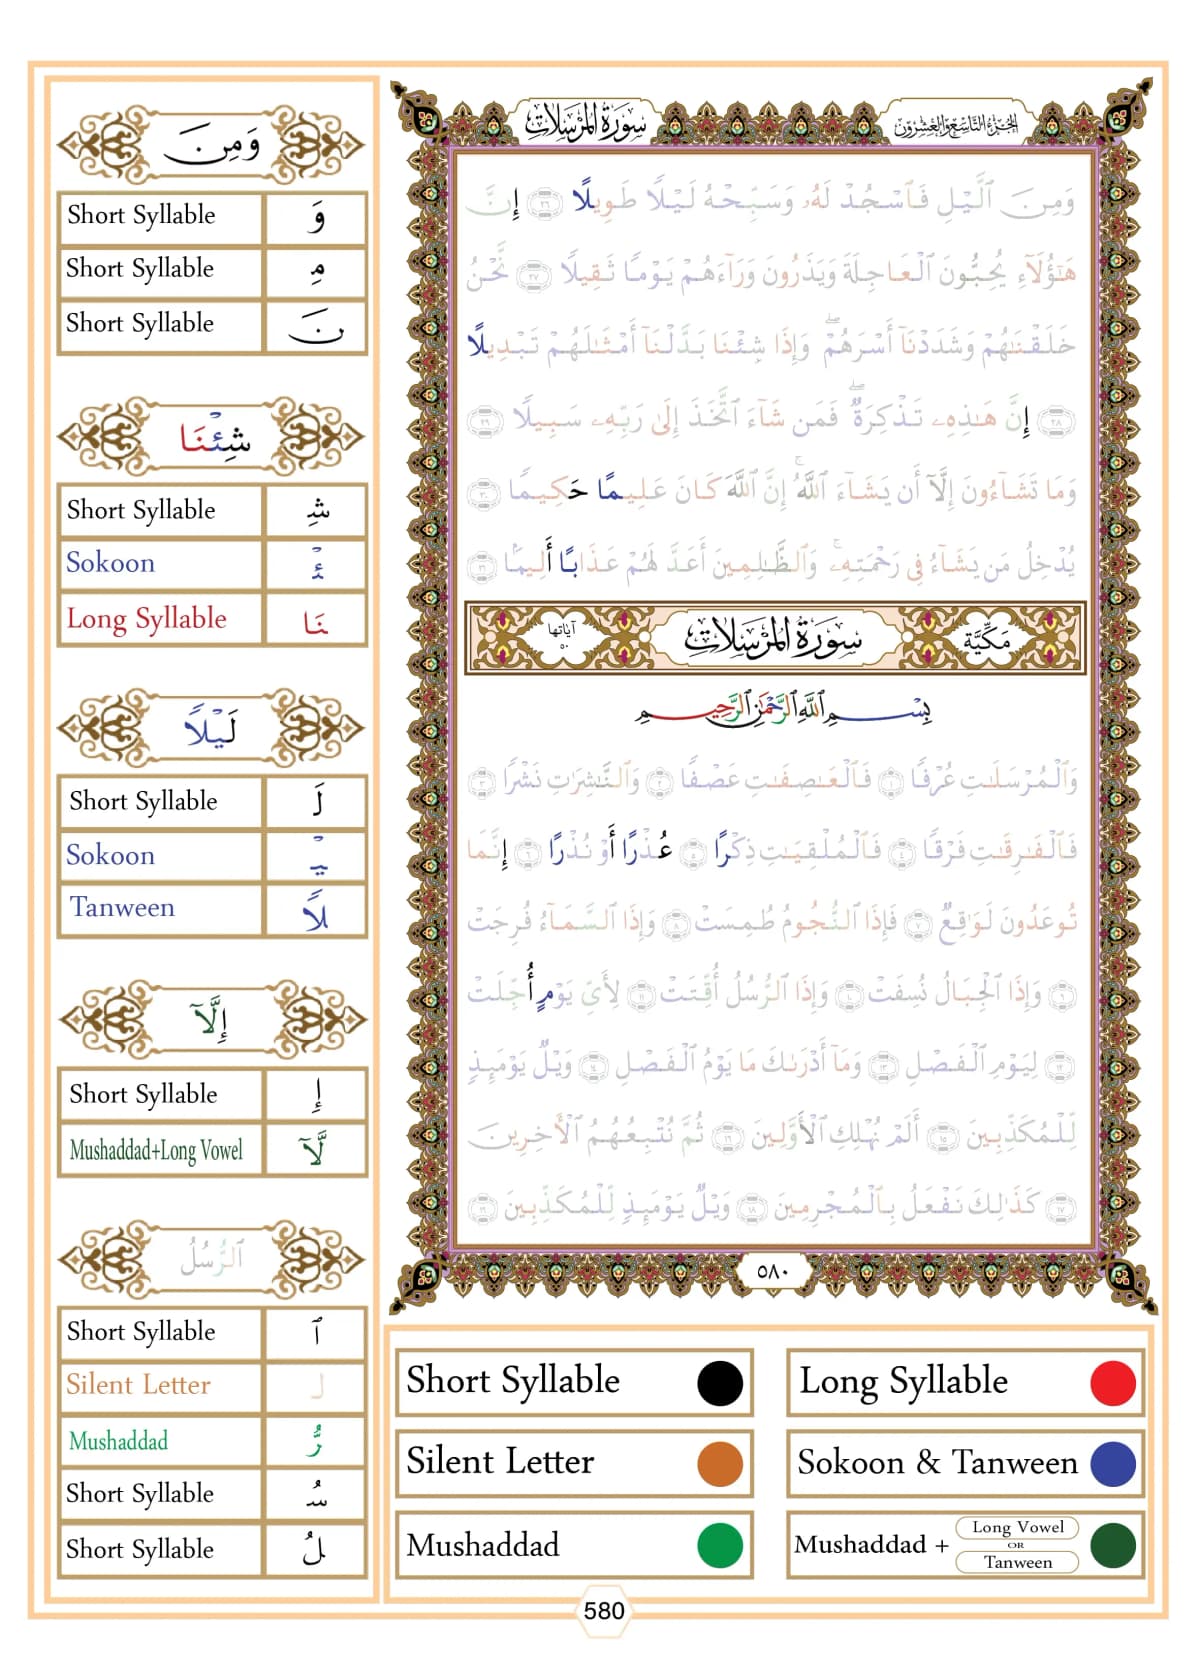 سُورَةُ المُرْسَلَات
الجُزْءُ التَّاسِعُ وَالعِشْرُون
وَمِنَ
Short Syllable وَ
Short Syllable مِ
Short Syllable نَ
شِئْنَا
Short Syllable شِ
Sokoon ئْ
Long Syllable نَا
لَيْلًا
Short Syllable لَ
Sokoon يْ
Tanween لًا
إِلَّآ
Short Syllable إِ
Mushaddad+Long Vowel لَّآ
ٱلرُّسُلُ
Short Syllable ٱ
Silent Letter ل
Mushaddad رُّ
Short Syllable سُ
Short Syllable لُ
وَمِنَ ٱلَّيْلِ فَٱسْجُدْ لَهُۥ وَسَبِّحْهُ لَيْلًا طَوِيلًا ٢٦ إِنَّ
هَٰٓؤُلَآءِ يُحِبُّونَ ٱلْعَاجِلَةَ وَيَذَرُونَ وَرَآءَهُمْ يَوْمًا ثَقِيلًا ٢٧ نَّحْنُ
خَلَقْنَٰهُمْ وَشَدَدْنَآ أَسْرَهُمْ ۖ وَإِذَا شِئْنَا بَدَّلْنَآ أَمْثَٰلَهُمْ تَبْدِيلًا
٢٨ إِنَّ هَٰذِهِۦ تَذْكِرَةٌ ۖ فَمَن شَآءَ ٱتَّخَذَ إِلَىٰ رَبِّهِۦ سَبِيلًا ٢٩
وَمَا تَشَآءُونَ إِلَّآ أَن يَشَآءَ ٱللَّهُ ۚ إِنَّ ٱللَّهَ كَانَ عَلِيمًا حَكِيمًا ٣٠
يُدْخِلُ مَن يَشَآءُ فِى رَحْمَتِهِۦ ۚ وَٱلظَّٰلِمِينَ أَعَدَّ لَهُمْ عَذَابًا أَلِيمًۢا ٣١
مَكِّيَّة سُورَةُ المُرْسَلَات آيَاتُهَا ٥٠
بِسْمِ ٱللَّهِ ٱلرَّحْمَٰنِ ٱلرَّحِيمِ
وَٱلْمُرْسَلَٰتِ عُرْفًا ١ فَٱلْعَٰصِفَٰتِ عَصْفًا ٢ وَٱلنَّٰشِرَٰتِ نَشْرًا ٣
فَٱلْفَٰرِقَٰتِ فَرْقًا ٤ فَٱلْمُلْقِيَٰتِ ذِكْرًا ٥ عُذْرًا أَوْ نُذْرًا ٦ إِنَّمَا
تُوعَدُونَ لَوَٰقِعٌ ٧ فَإِذَا ٱلنُّجُومُ طُمِسَتْ ٨ وَإِذَا ٱلسَّمَآءُ فُرِجَتْ
٩ وَإِذَا ٱلْجِبَالُ نُسِفَتْ ١٠ وَإِذَا ٱلرُّسُلُ أُقِّتَتْ ١١ لِأَىِّ يَوْمٍ أُجِّلَتْ
١٢ لِيَوْمِ ٱلْفَصْلِ ١٣ وَمَآ أَدْرَىٰكَ مَا يَوْمُ ٱلْفَصْلِ ١٤ وَيْلٌ يَوْمَئِذٍ
لِّلْمُكَذِّبِينَ ١٥ أَلَمْ نُهْلِكِ ٱلْأَوَّلِينَ ١٦ ثُمَّ نُتْبِعُهُمُ ٱلْءَاخِرِينَ
١٧ كَذَٰلِكَ نَفْعَلُ بِٱلْمُجْرِمِينَ ١٨ وَيْلٌ يَوْمَئِذٍ لِّلْمُكَذِّبِينَ ١٩
٥٨٠
Short Syllable
Long Syllable
Silent Letter
Sokoon & Tanween
Mushaddad
Mushaddad + Long Vowel OR Tanween
580